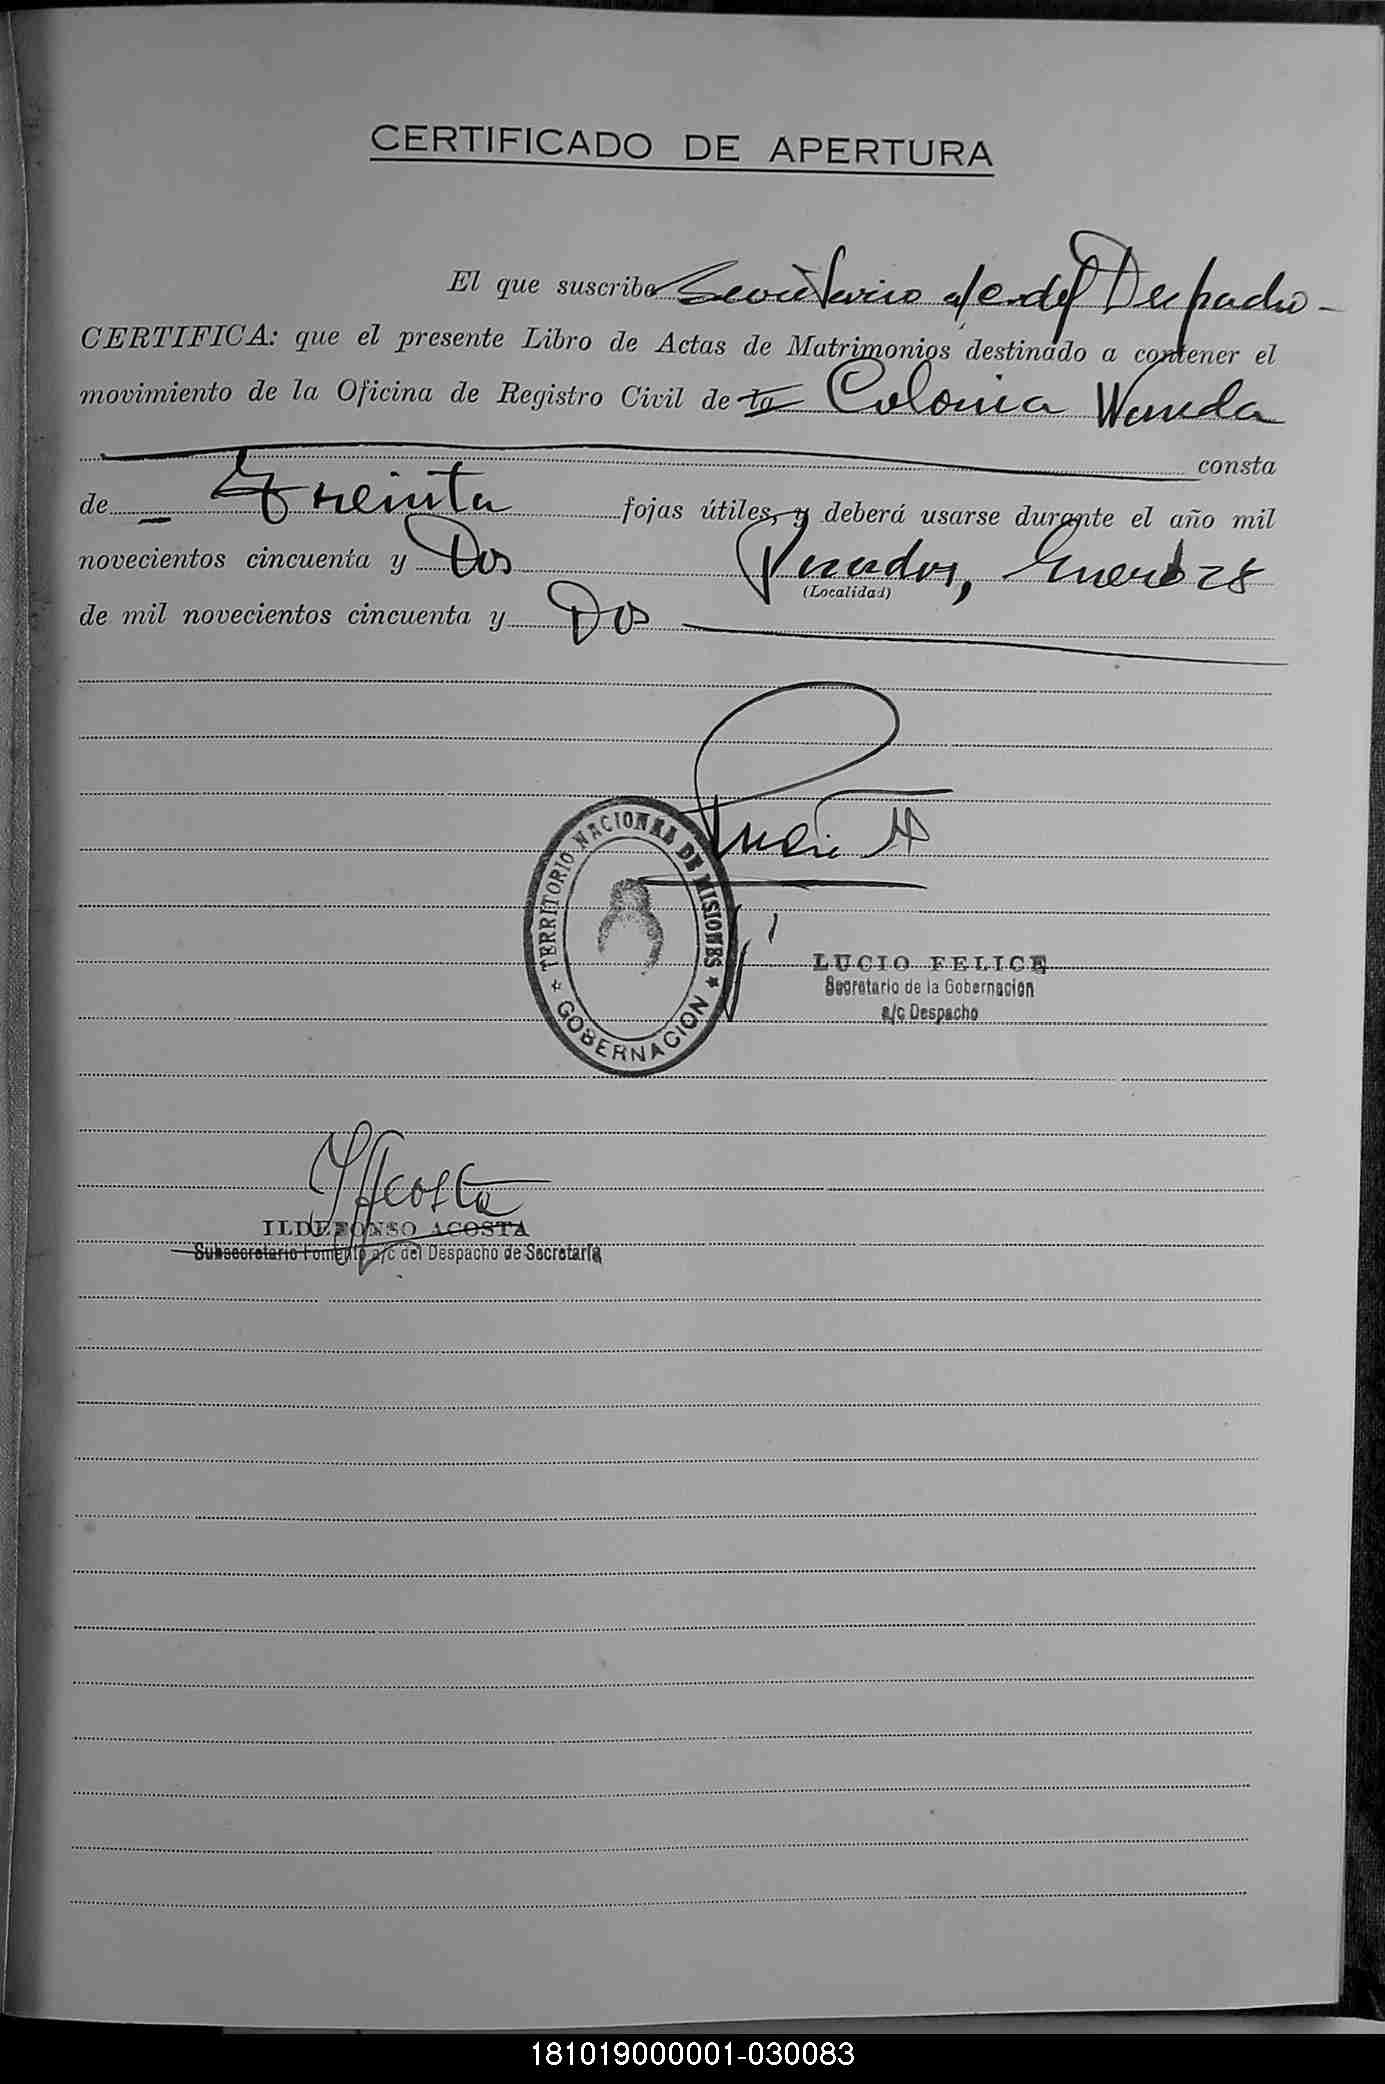 CERTIFICADO DE APERTURA
El que suscribe Secretario a/c. del Despacho -
CERTIFICA: que el presente Libro de Actas de Matrimonios destinado a contener el
movimiento de la Oficina de Registro Civil de la Colonia Wanda
consta
de Treinta fojas útiles, y deberá usarse durante el año mil
novecientos cincuenta y Dos Posadas, Enero 28
(Localidad)
de mil novecientos cincuenta y Dos
TERRITORIO NACIONAL DE MISIONES
GOBERNACION
LUCIO FELICE
Secretario de la Gobernacion
a/c Despacho
Acosta
ILDEFONSO ACOSTA
Subsecretario Fomento a/c del Despacho de Secretaría
181019000001-030083